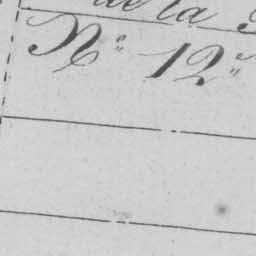 de la
N.º 12."